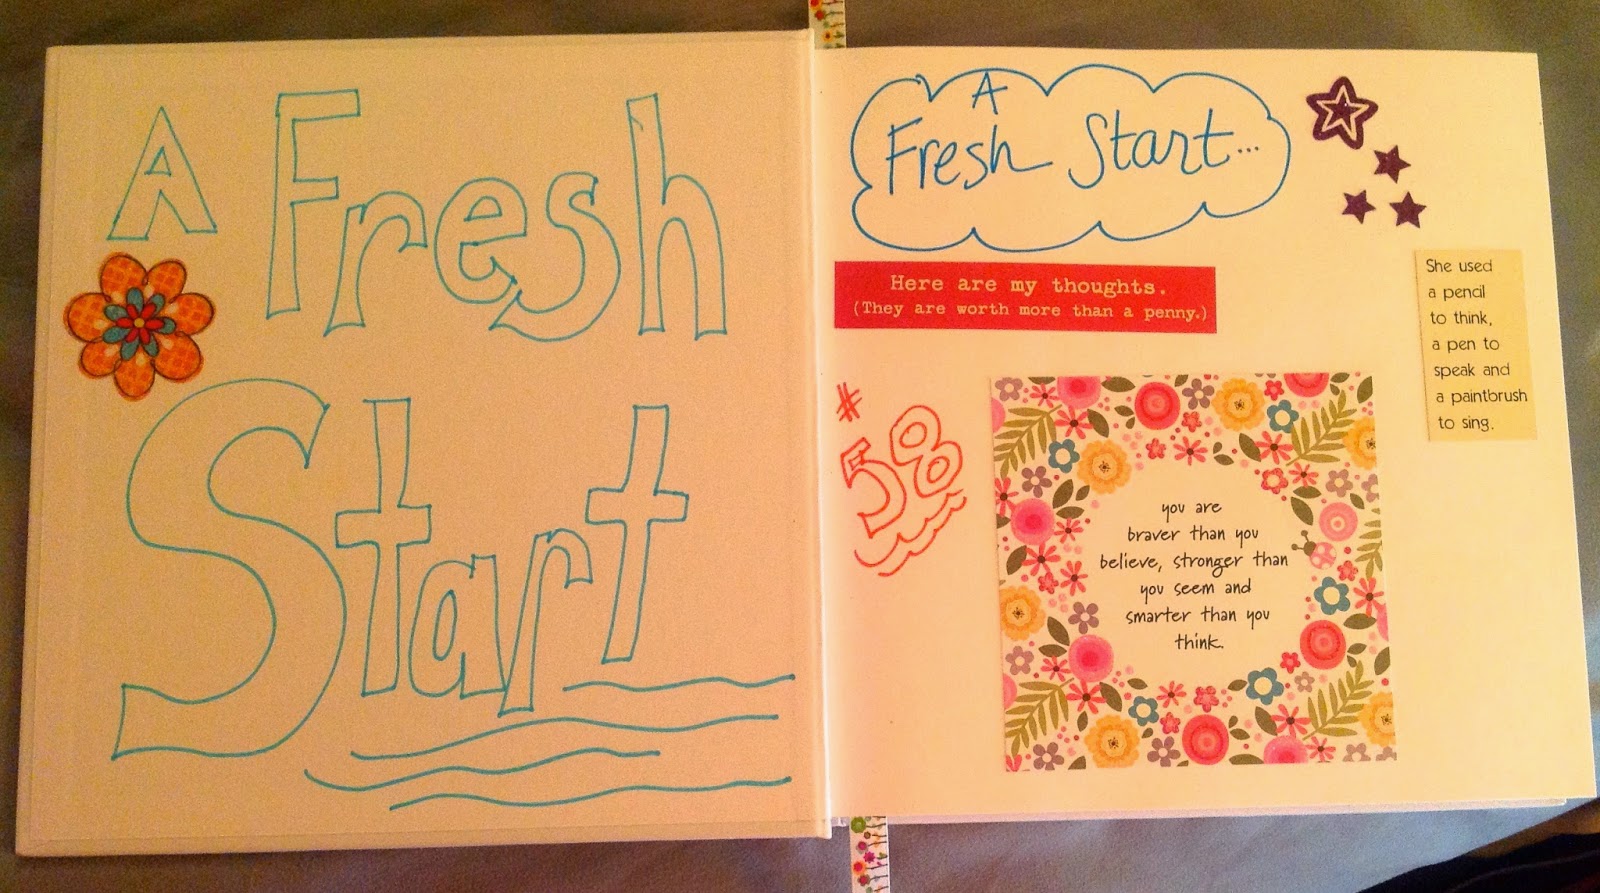 A Fresh
Start
A
Fresh Start...
Here are my thoughts.
(They are worth more than a penny.)
She used
a pencil
to think,
a pen to
speak and
a paintbrush
to sing.
#
58
you are
braver than you
believe, stronger than
you seem and
smarter than you
think.